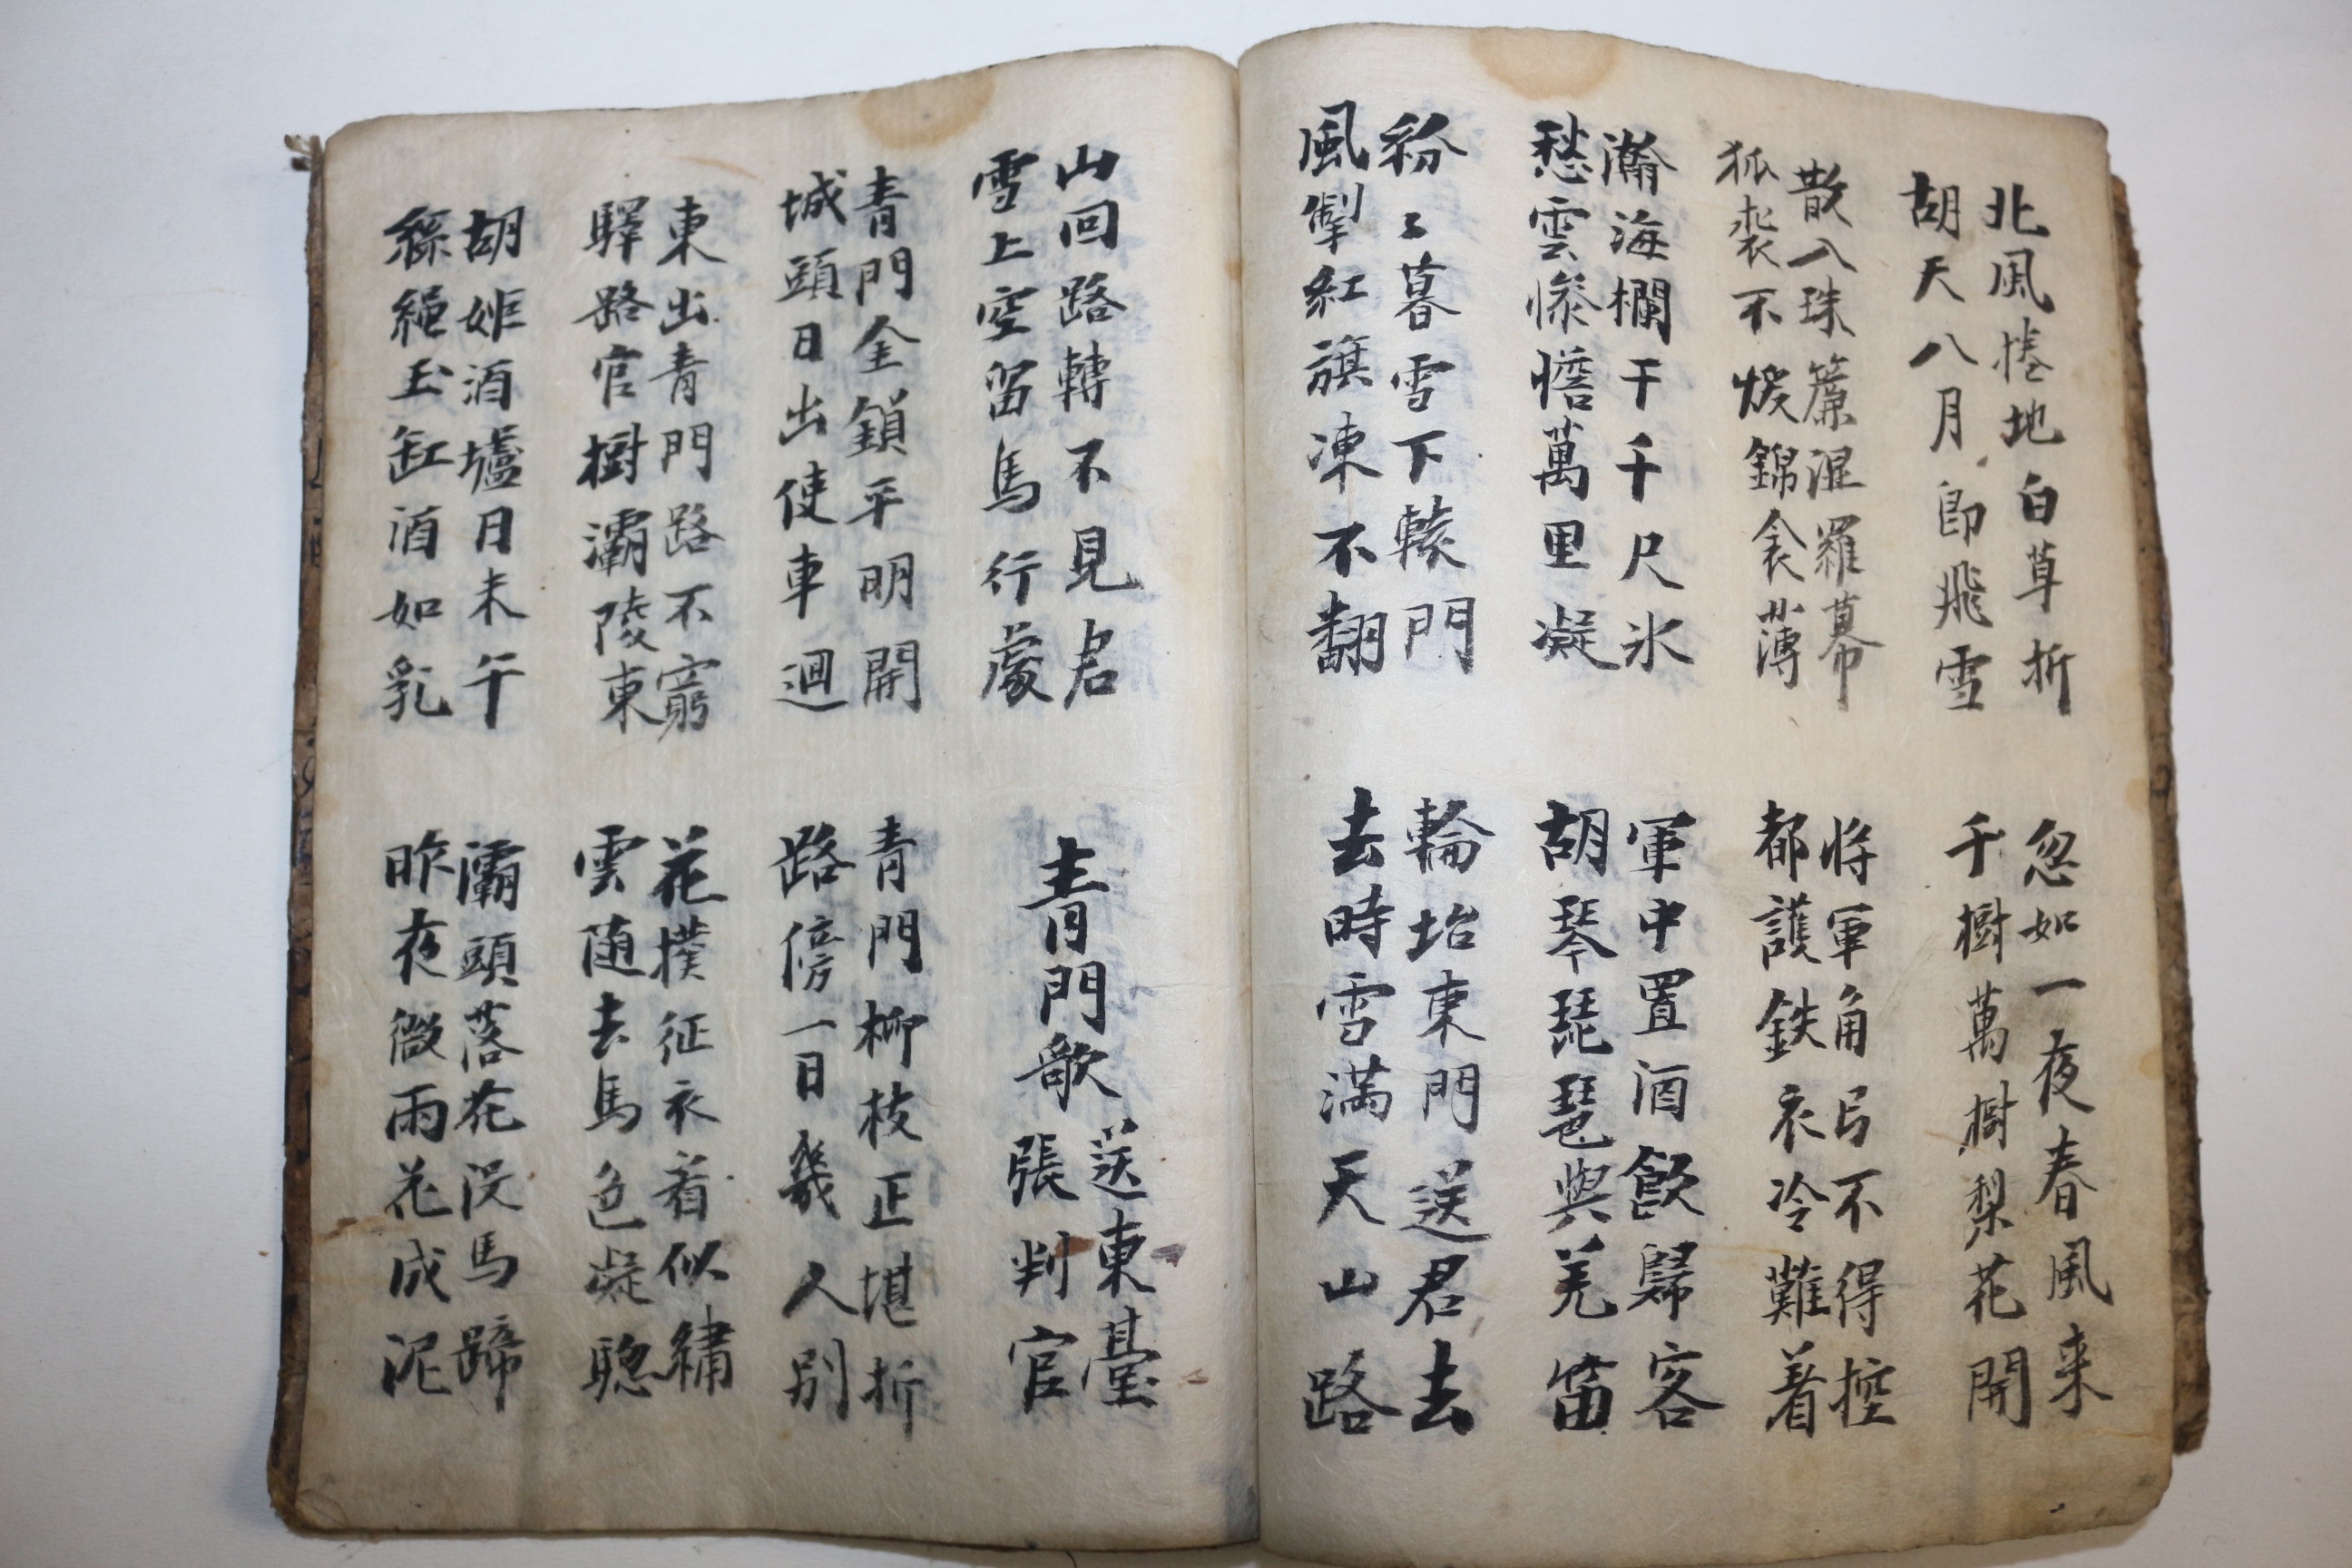 北風捲地白草折
胡天八月即飛雪
忽如一夜春風来
千樹萬樹梨花開
散入珠簾濕羅幕
狐裘不煖錦衾薄
将軍角弓不得控
都護鉄衣冷難着
瀚海欄干千尺氷
愁雲慘憺萬里凝
軍中置酒飲歸客
胡琴琵琶與羌笛
紛々暮雪下轅門
風掣紅旗凍不翻
輪坮東門送君去
去時雪滿天山路
山回路轉不見君
雪上空留馬行處
青門歌
送東臺
張判官
青門金鎖平明開
城頭日出使車迴
青門柳枝正堪折
路傍一日幾人別
東出青門路不窮
驛路官樹灞陵東
花撲征衣看似繡
雲随去馬色凝驄
胡姬酒壚日未午
絲繩玉缸酒如乳
灞頭落花沒馬蹄
昨夜微雨花成泥